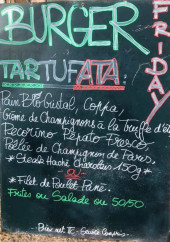 BURGER
FRIDAY
TARTUFATA:
Pain Bio Gustal, Coppa,
Crème de Champignons à la Truffe d'été
Pecorino Pepato Fresco
Poêlée de Champignon de Paris,
*Steak Haché Charolais 150g*
ou
*Filet de Poulet Pané.
Frites ou Salade ou 50/50
Prix net TTC - Service Compris